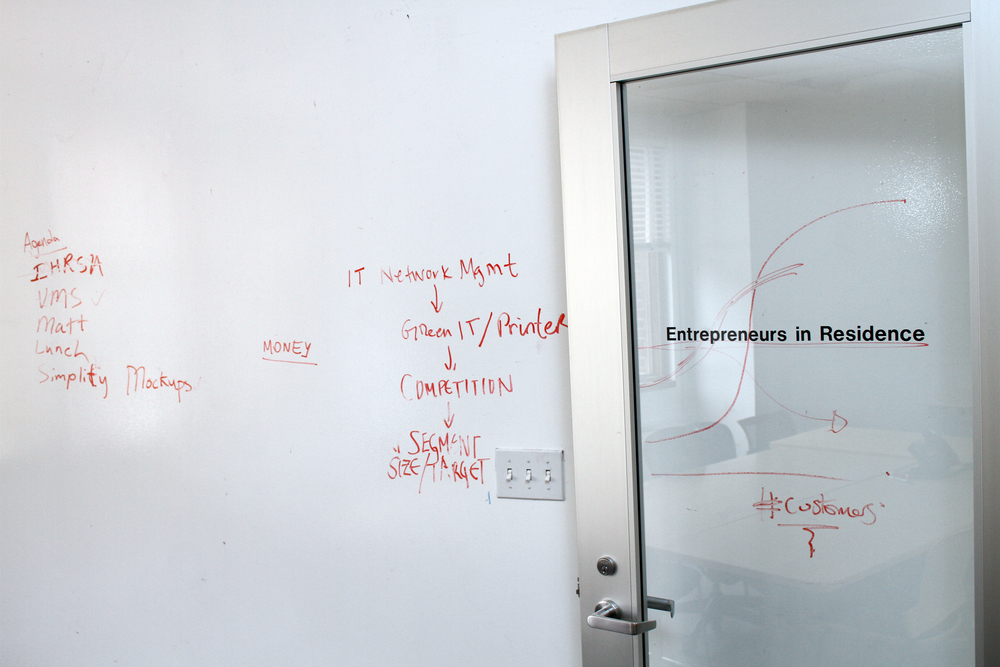 Agenda
IHRSA
VMS ✓
Matt
Lunch
Simplify Mockups
MONEY
IT Network Mgmt
↓
Green IT/Printer
↓
COMPETITION
↓
SEGMENT
SIZE/TARGET
Entrepreneurs in Residence
#Customers